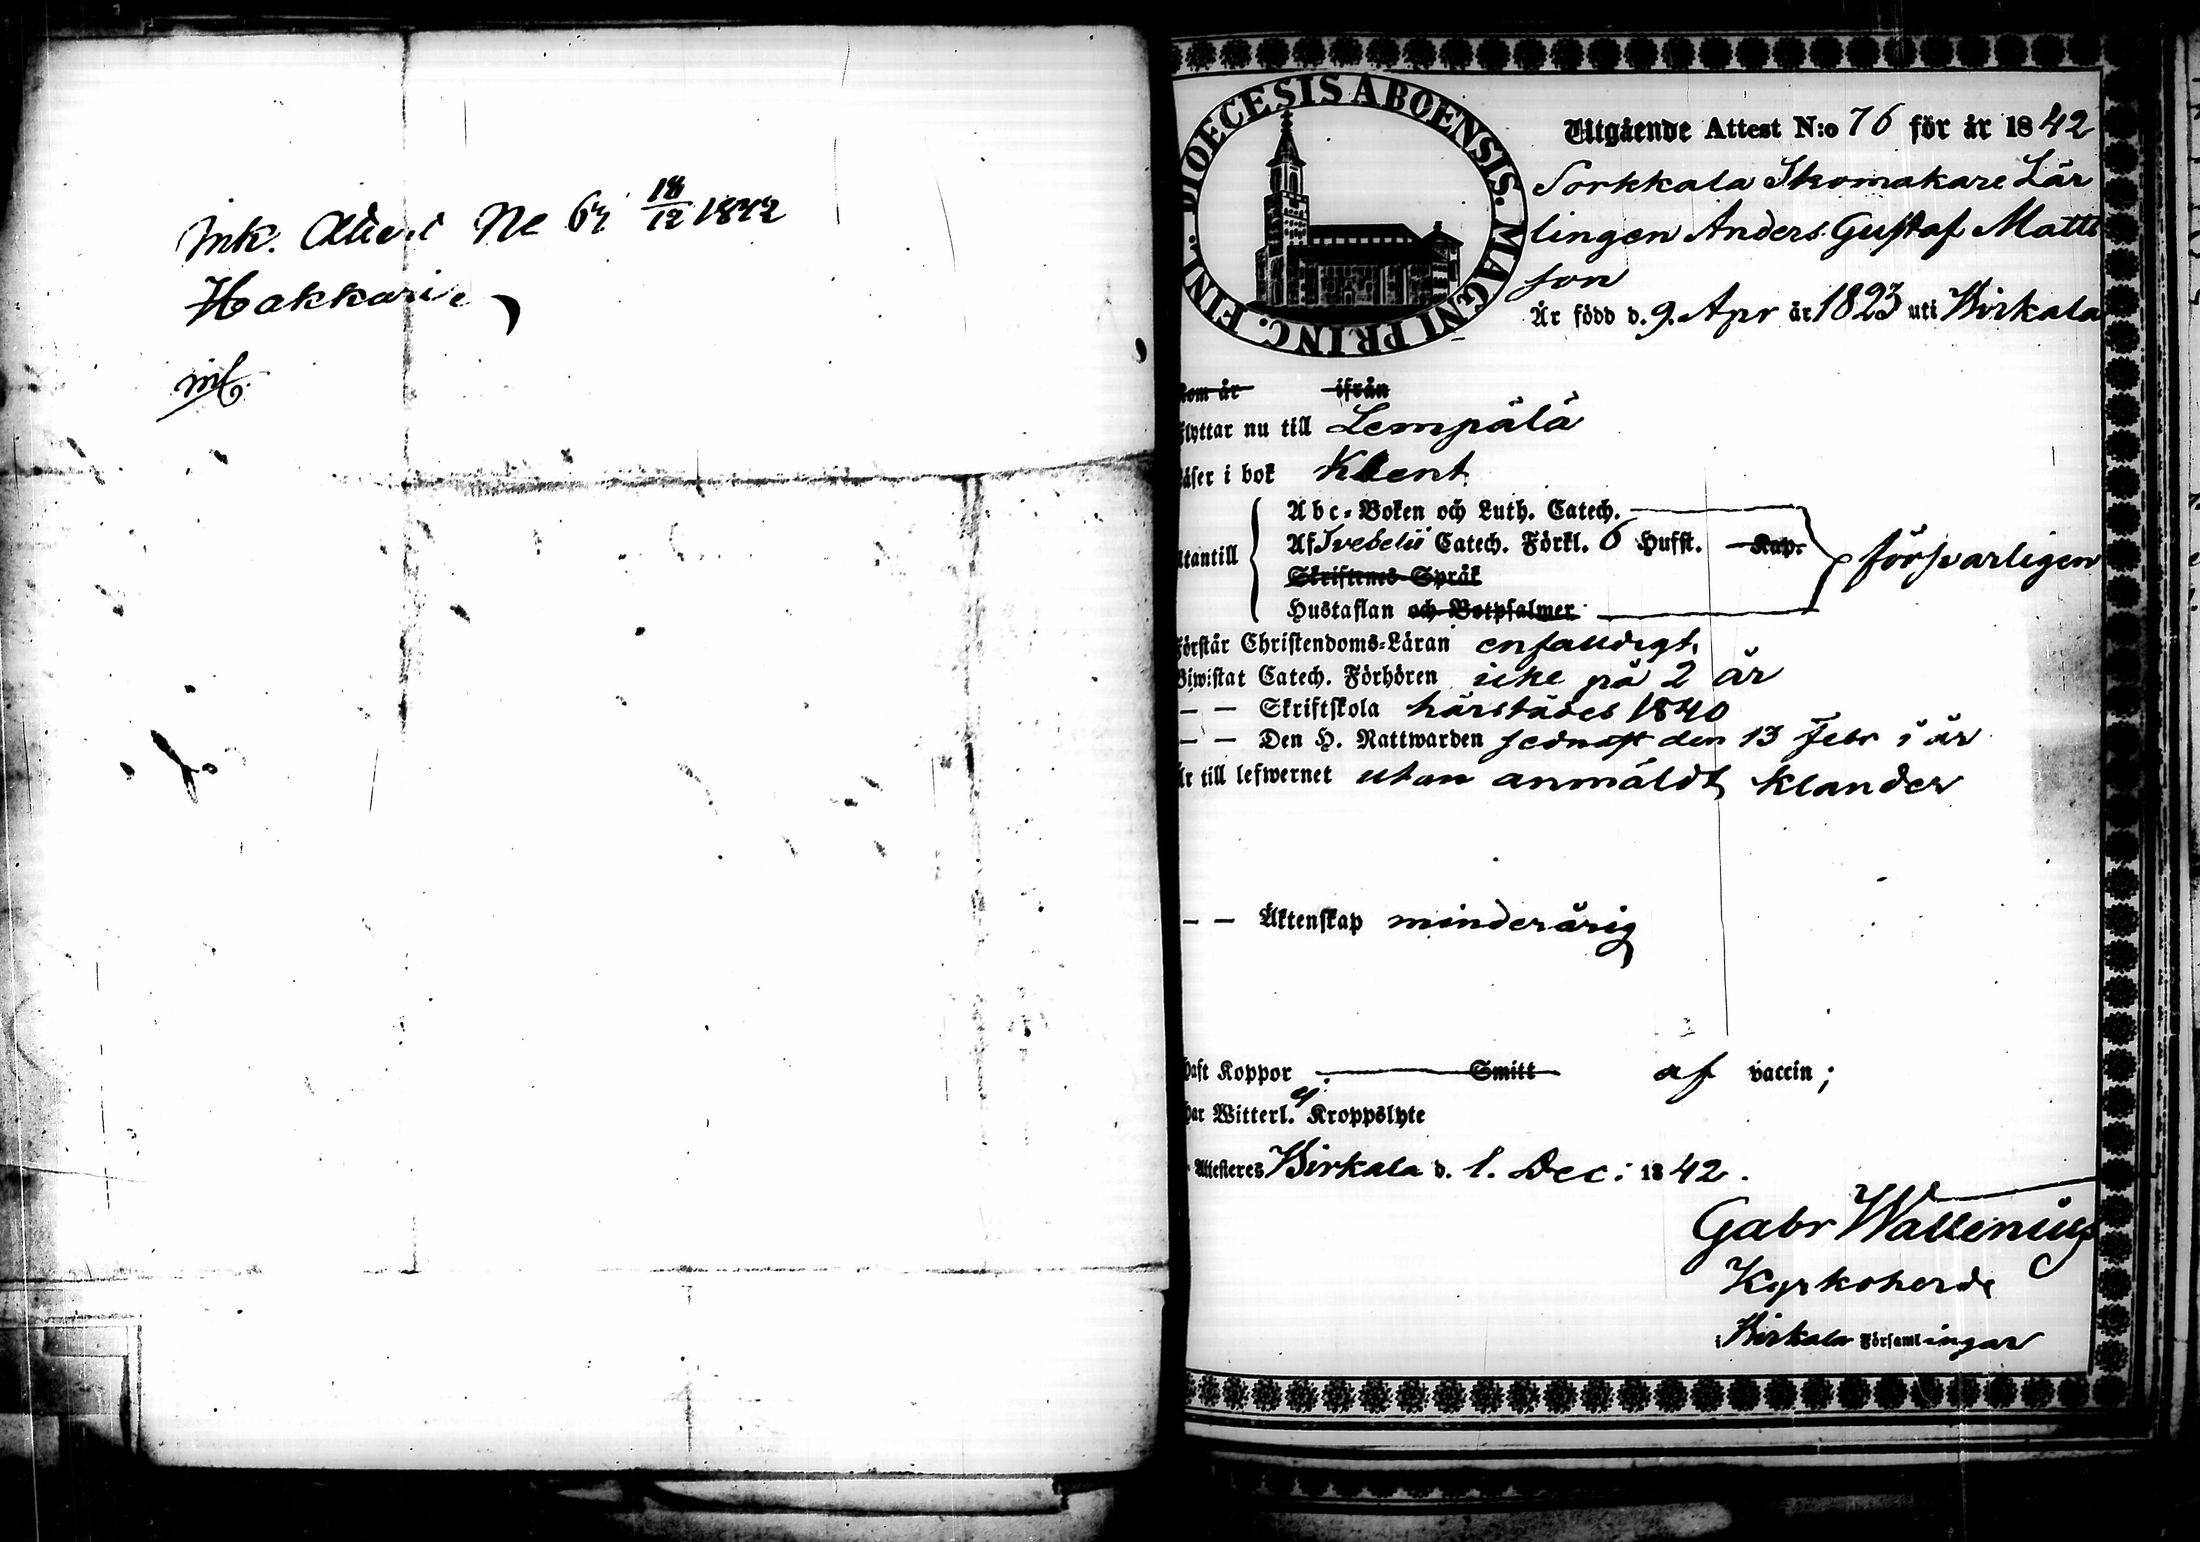 Ink. Attest No 67 18/12 1842
Hakkari
DIOECESIS ABOENSIS. MAGNI PRINC. FINL.
Utgående Attest N:o 76 för år 1842
Sorkkala Skomakare Lär
lingen Anders Gustaf Matts
son
Är född d. 9. Apr år 1823 uti Birkala
kom år ifrån
flyttar nu till Lempälä
läser i bok Klent
Abc-Boken och Luth. Catech.
Utantill Af Svebelii Catech. Förkl. 6 Hufst. Kap. försvarligen
Skriftenes Språk
Hustaflan och Botpsalmer
Förstår Christendoms-Läran enfalldigt,
Biwistat Catech. Förhören icke på 2 år
— — Skriftskola härstädes 1840
— — Den H. Nattwarden sednast den 13 Febr i år
Är till lefwernet utan anmäldt klander
— — Äktenskap minderårig
Haft Koppor Smitt af vaccin;
Har Witterl. ej Kroppslyte
Attesteres Birkala d. 1. Dec: 1842.
Gabr Wallenius
Kyrkoherde
i Birkala Församlingar